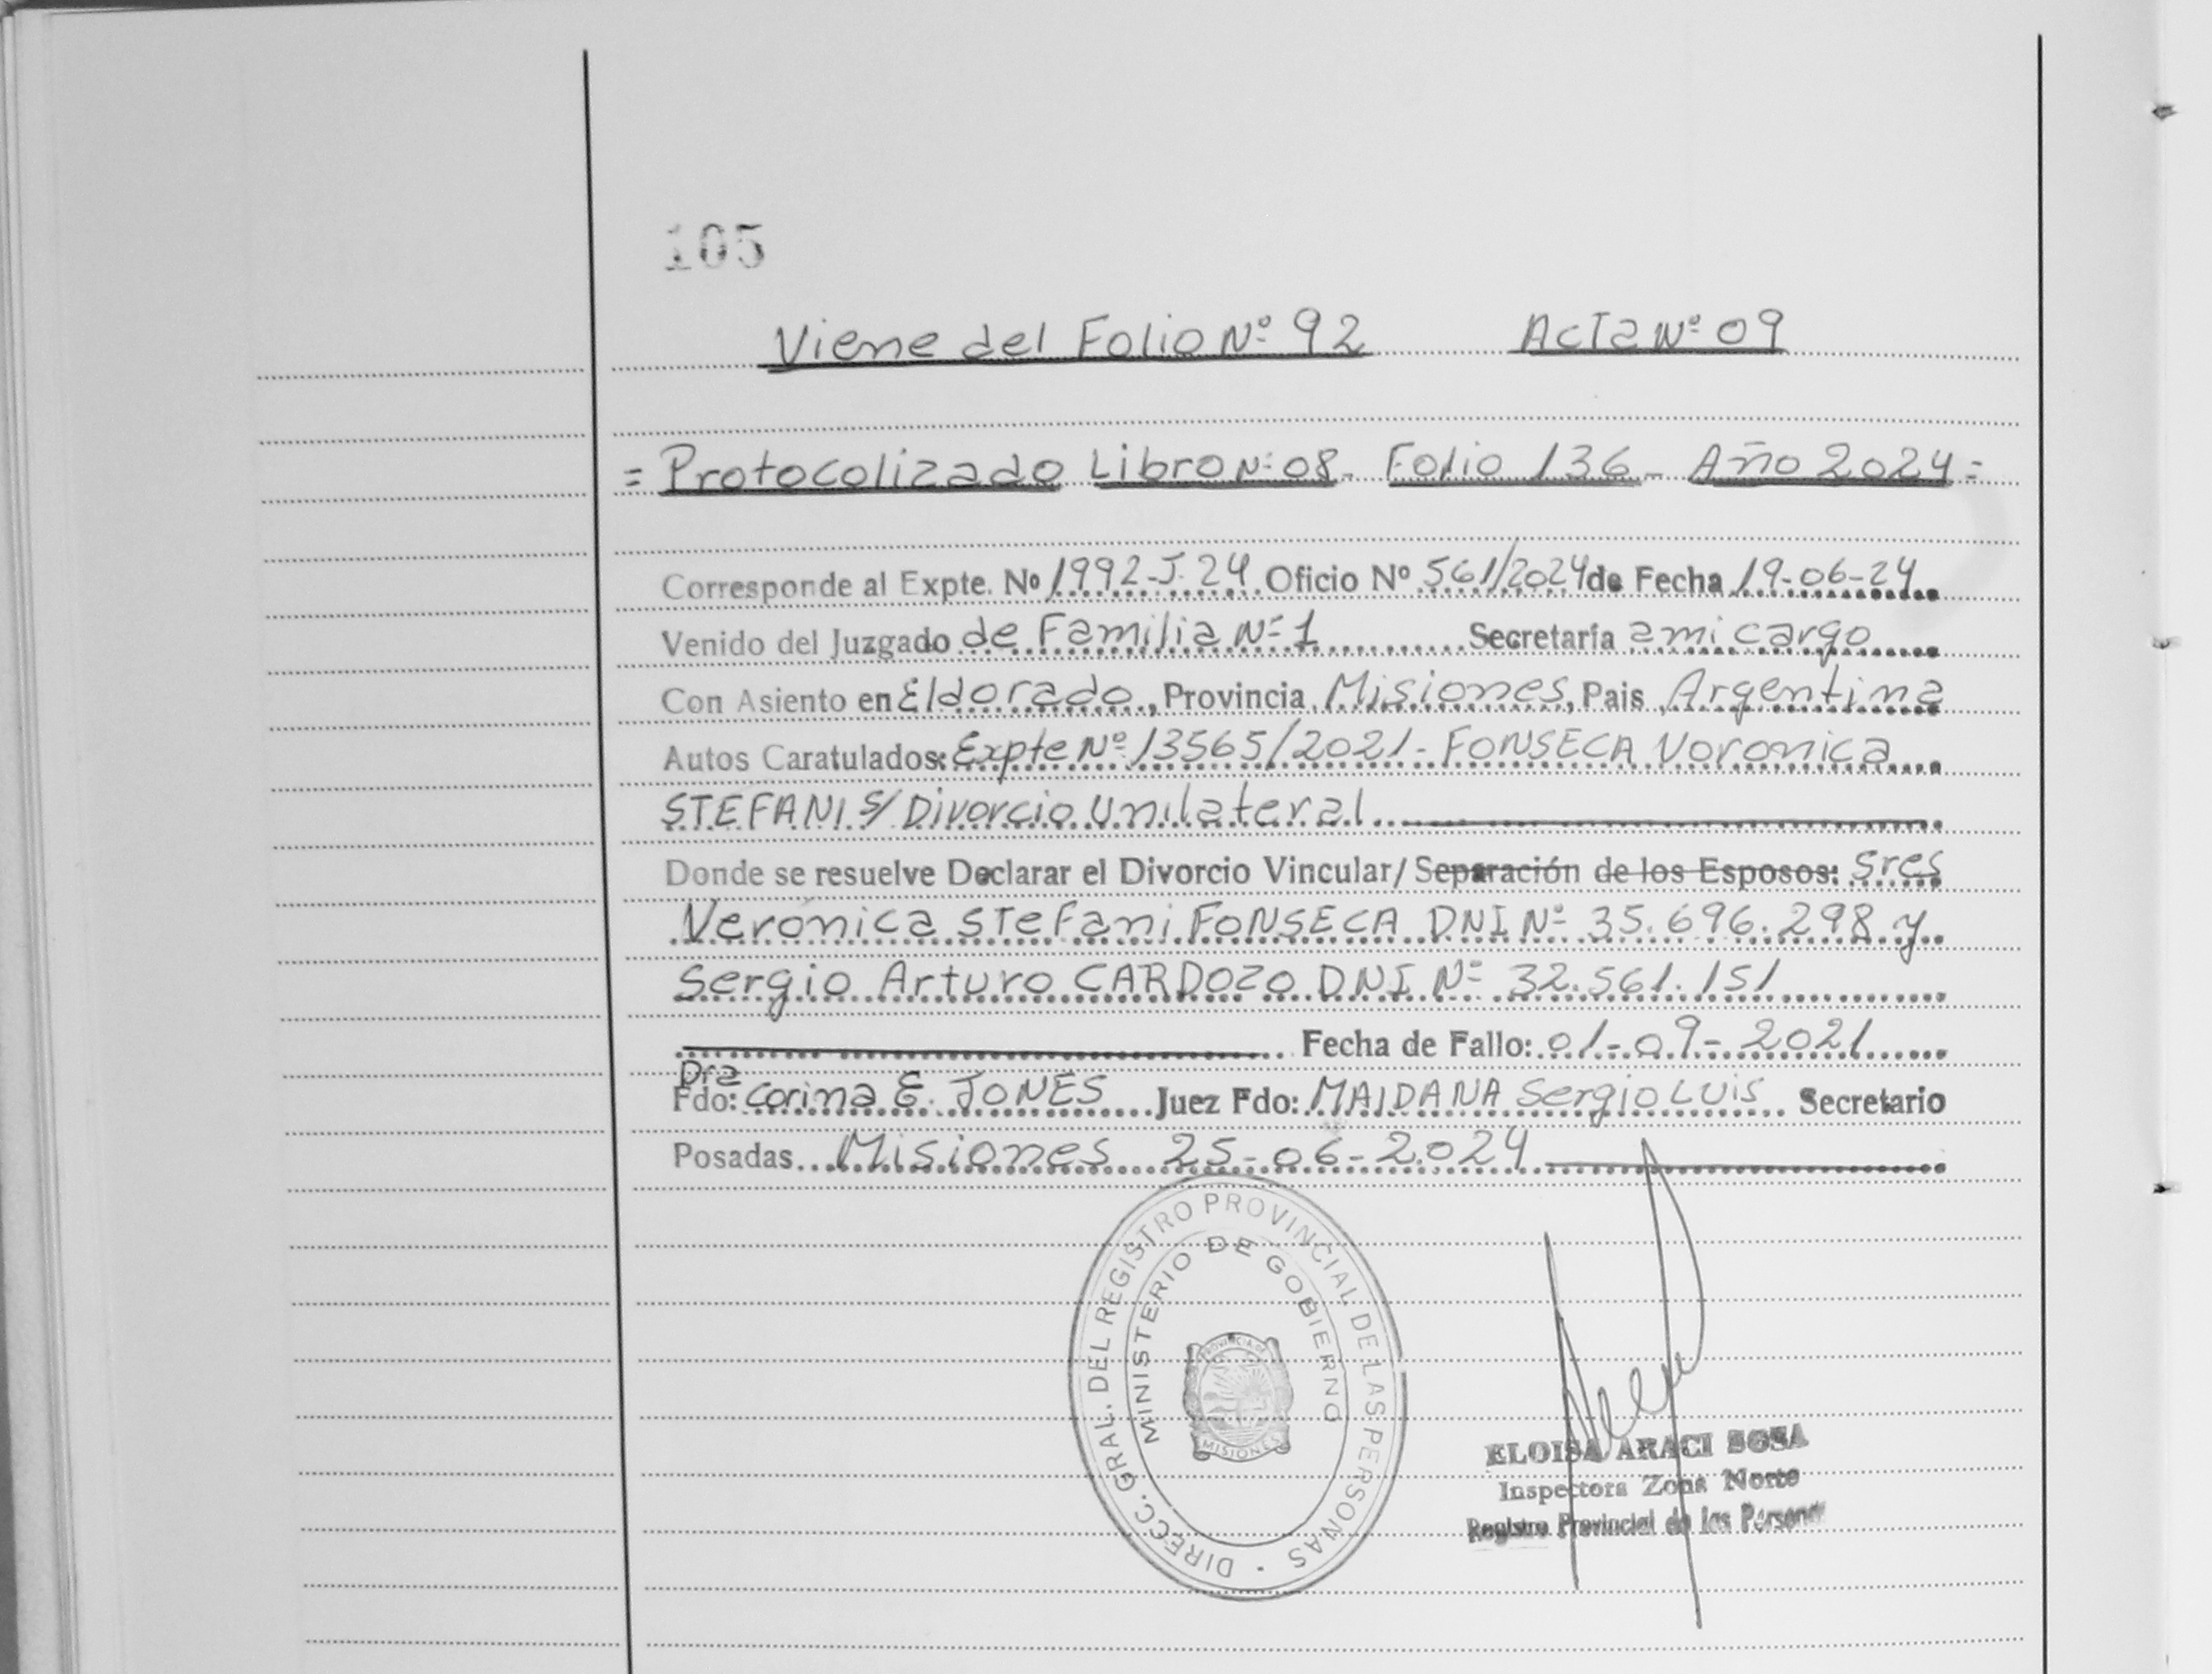 105
Viene del Folio Nº 92 Acta Nº 09
= Protocolizado Libro Nº 08 - Folio 136 - Año 2024 =
Corresponde al Expte. Nº 1992-J-24 Oficio Nº 561/2024 de Fecha 19-06-24
Venido del Juzgado de Familia Nº 1 Secretaría a mi cargo
Con Asiento en Eldorado, Provincia Misiones, Pais Argentina
Autos Caratulados: Expte Nº 13565/2021 - FONSECA Voronica
STEFANI S/ Divorcio Unilateral
Donde se resuelve Declarar el Divorcio Vincular/ Separación de los Esposos: Sres
Verónica Stefani FONSECA DNI Nº 35.696.298 y
Sergio Arturo CARDOZO DNI Nº 32.561.151
Fecha de Fallo: 01-09-2021
Dra
Fdo: Corina E. JONES Juez Fdo: MAIDANA Sergio Luis Secretario
Posadas Misiones 25-06-2024
DIRECC. GRAL. DEL REGISTRO PROVINCIAL DE LAS PERSONAS
MINISTERIO DE GOBIERNO
PROVINCIA DE
MISIONES
ELOISA ARACI SOSA
Inspectora Zona Norte
Registro Provincial de las Personas